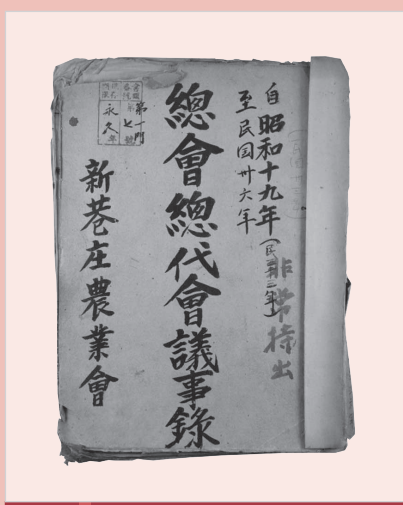 自昭和十九年
至民国卅六年
非常持出
總會總代會議事錄
第一門
第七號
永久年
新巷庄農業會